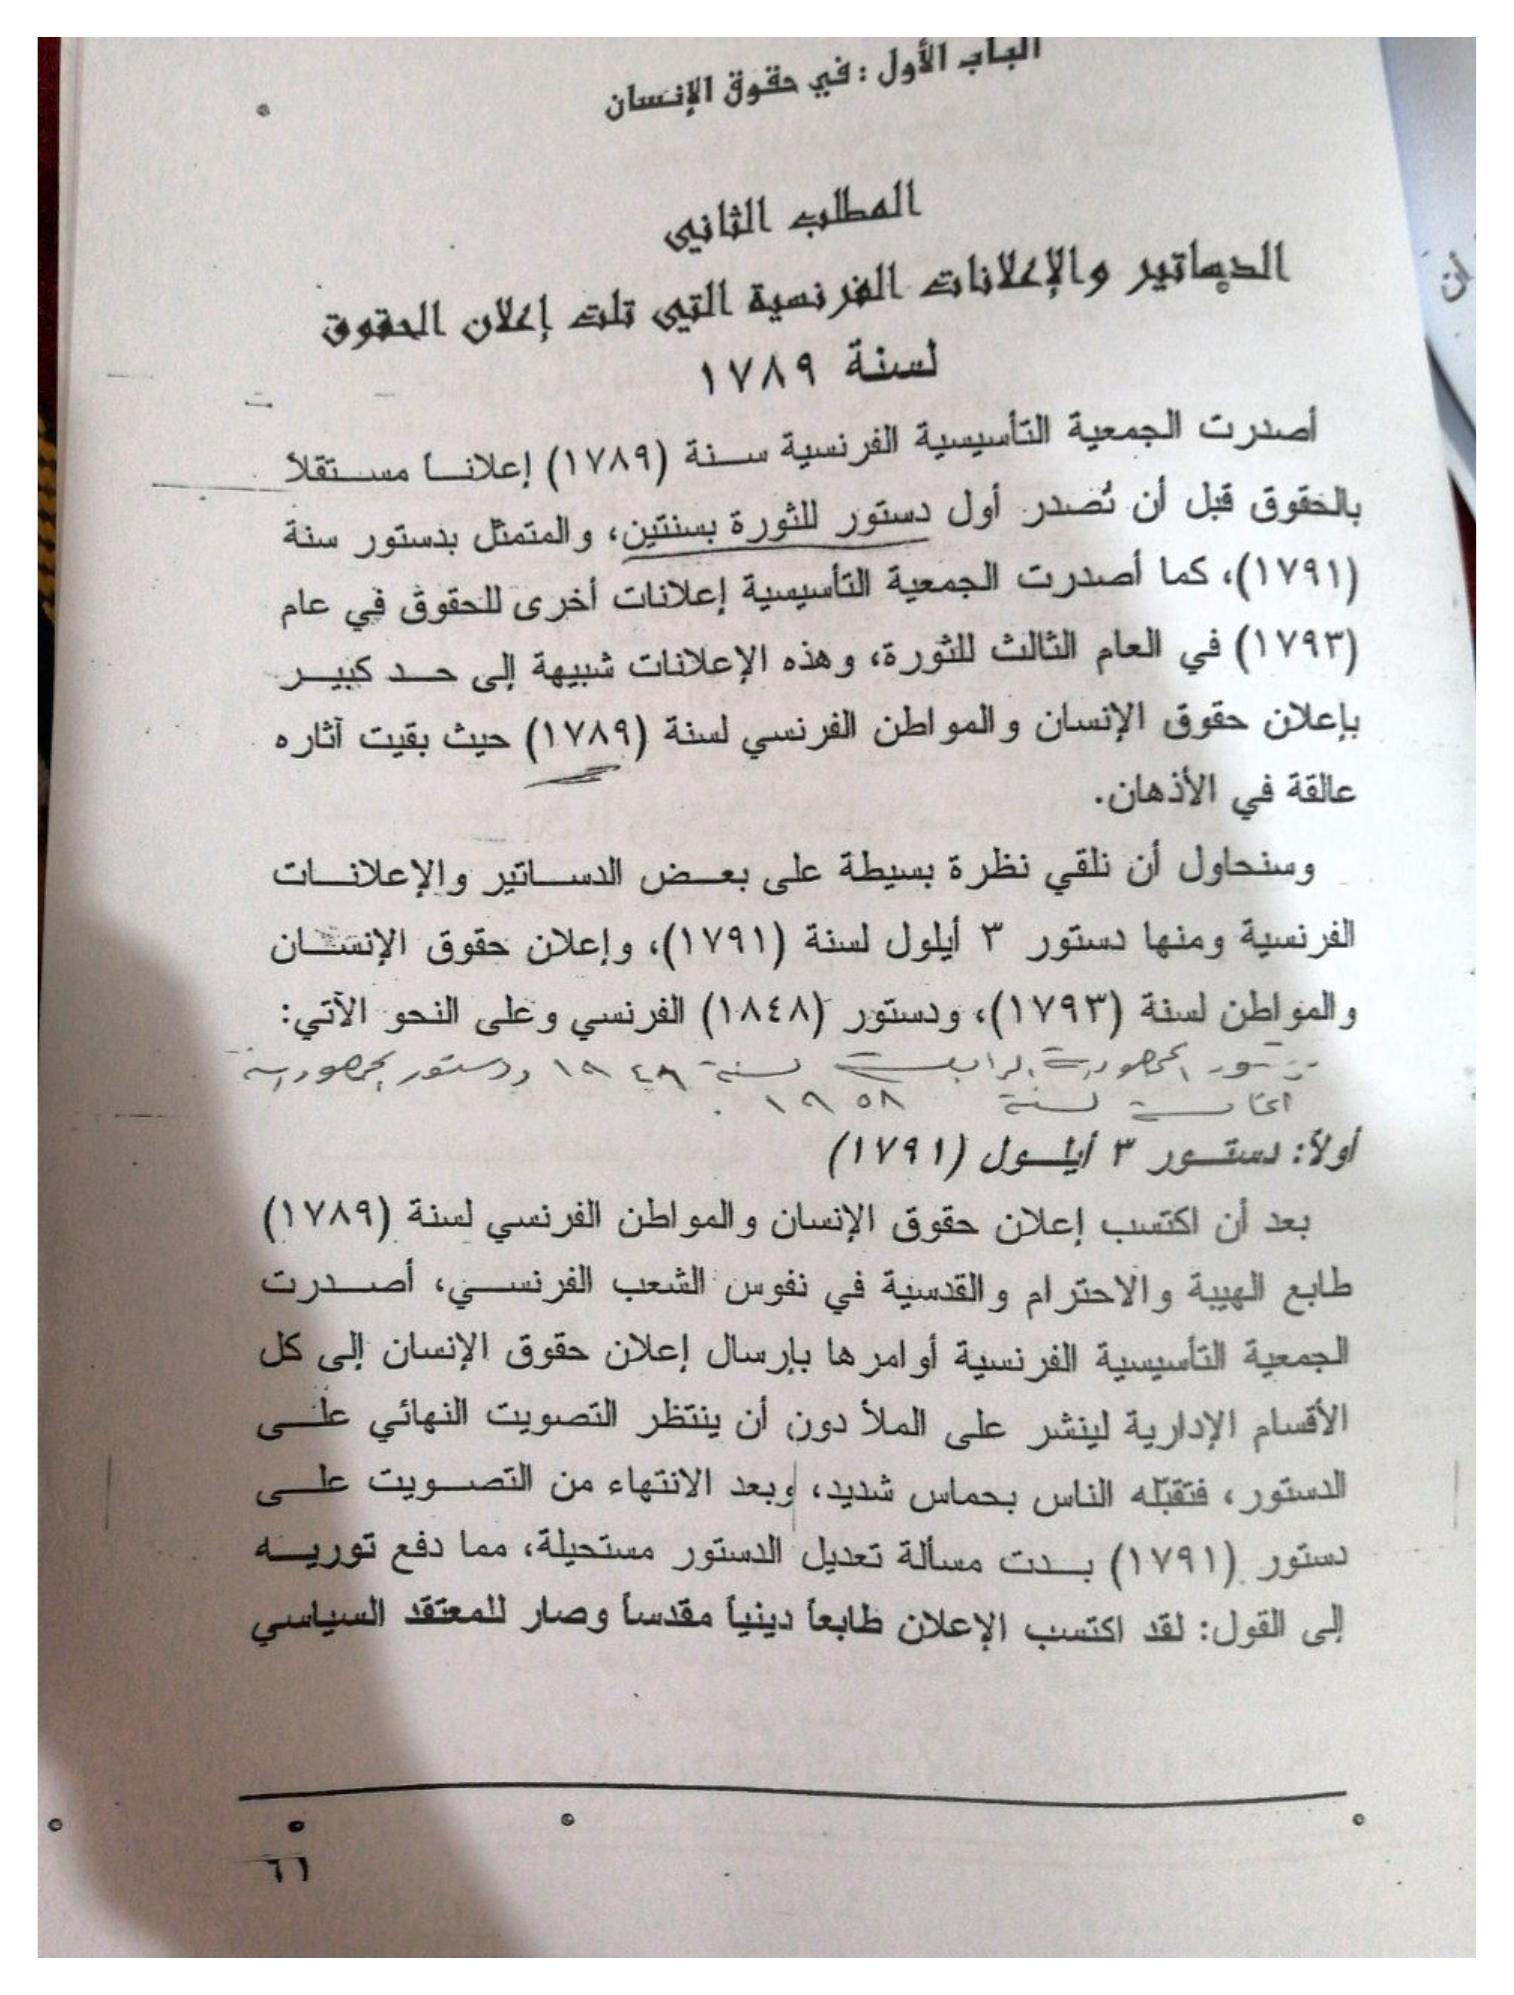 الباب الأول : في حقوق الإنسان
المطلب الثاني
الدساتير والإعلانات الفرنسية التي تلت إعلان الحقوق
لسنة ١٧٨٩
أصدرت الجمعية التأسيسية الفرنسية سنة (١٧٨٩) إعلاناً مستقلاً
بالحقوق قبل أن تُصدر أول دستور للثورة بسنتين، والمتمثل بدستور سنة
(١٧٩١)، كما أصدرت الجمعية التأسيسية إعلانات أخرى للحقوق في عام
(١٧٩٣) في العام الثالث للثورة، وهذه الإعلانات شبيهة إلى حد كبير
بإعلان حقوق الإنسان والمواطن الفرنسي لسنة (١٧٨٩) حيث بقيت آثاره
عالقة في الأذهان.
وسنحاول أن نلقي نظرة بسيطة على بعض الدساتير والإعلانات
الفرنسية ومنها دستور ٣ أيلول لسنة (١٧٩١)، وإعلان حقوق الإنسان
والمواطن لسنة (١٧٩٣)، ودستور (١٨٤٨) الفرنسي وعلى النحو الآتي:
الجمهورية الرابعة لسنة ودستور الجمهورية
الخامسة لسنة ١٩٥٨.
أولاً: دستور ٣ أيلول (١٧٩١)
بعد أن اكتسب إعلان حقوق الإنسان والمواطن الفرنسي لسنة (١٧٨٩)
طابع الهيبة والاحترام والقدسية في نفوس الشعب الفرنسي، أصدرت
الجمعية التأسيسية الفرنسية أوامرها بإرسال إعلان حقوق الإنسان إلى كل
الأقسام الإدارية لينشر على الملأ دون أن ينتظر التصويت النهائي على
الدستور، فتقبّله الناس بحماس شديد، وبعد الانتهاء من التصويت على
دستور (١٧٩١) بدت مسألة تعديل الدستور مستحيلة، مما دفع توريه
إلى القول: لقد اكتسب الإعلان طابعاً دينياً مقدساً وصار للمعتقد السياسي
٦١